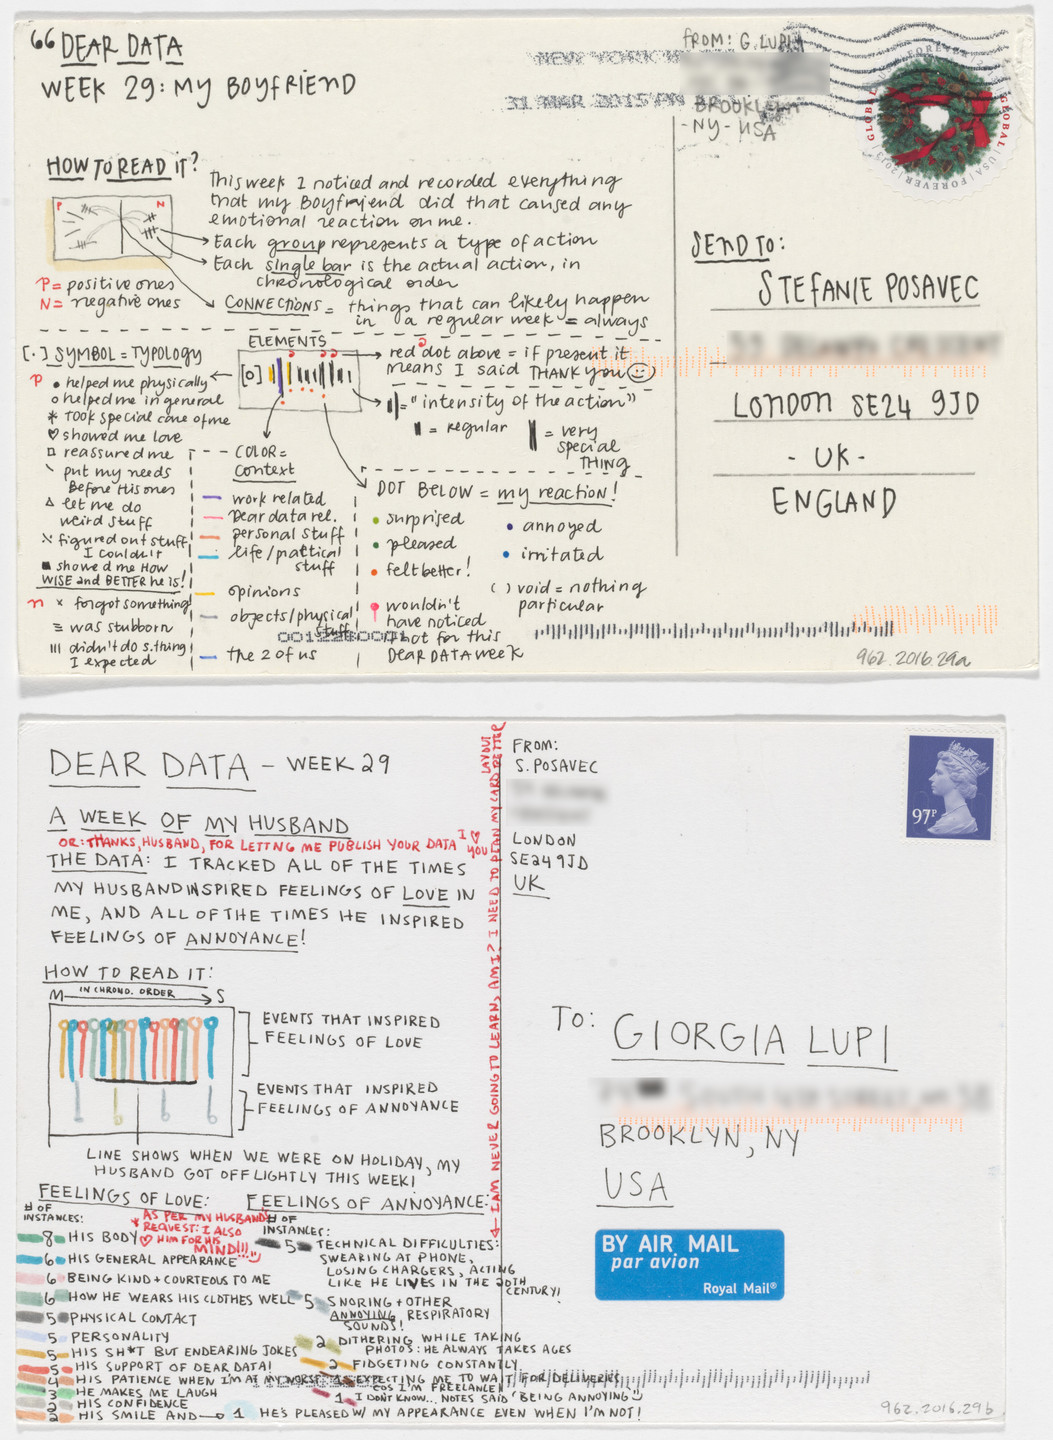 “ DEAR DATA
WEEK 29: MY BOYFRIEND
FROM: G. LUPI
BROOKLYN
- NY - USA
NEW YORK
31 MAR 2015 PM
GLOBAL
FOREVER
GLOBAL
USA
FOREVER
2013
HOW TO READ IT?
P N
P = positive ones
N = negative ones
This week I noticed and recorded everything
that my Boyfriend did that caused any
emotional reaction on me.
Each group represents a type of action
Each single bar is the actual action, in
chronological order
CONNECTIONS = things that can likely happen
in a regular week = always
SEND TO:
STEFANIE POSAVEC
LONDON SE24 9JD
- UK -
ENGLAND
[·] SYMBOL = TYPOLOGY
P • helped me physically
o helped me in general
* TOOK special care of me
♡ showed me love
□ reassured me
\ put my needs
Before His ones
△ let me do
weird stuff
figured out stuff
I couldn't
■ showed me HOW
WISE and BETTER he is!
n × forgot something
≡ was stubborn
III didn't do s.thing
I expected
ELEMENTS
[o]
red dot above = if present it
means I said THANK YOU ☺
= "intensity of the action"
= regular
= very
special
THING
COLOR =
Context
work related
Dear data rel.
personal stuff
life/practical
stuff
opinions
objects/physical
stuff
the 2 of us
DOT BELOW = my reaction!
• surprised
• pleased
• felt better!
wouldn't
have noticed
if not for this
DEAR DATA WEEK
• annoyed
• irritated
( ) void = nothing
particular
962.2016.29a
DEAR DATA - WEEK 29
A WEEK OF MY HUSBAND
OR: THANKS, HUSBAND, FOR LETTING ME PUBLISH YOUR DATA I ♡ YOU
THE DATA: I TRACKED ALL OF THE TIMES
MY HUSBAND INSPIRED FEELINGS OF LOVE IN
ME, AND ALL OF THE TIMES HE INSPIRED
FEELINGS OF ANNOYANCE!
HOW TO READ IT:
M IN CHRONO. ORDER S
EVENTS THAT INSPIRED
FEELINGS OF LOVE
EVENTS THAT INSPIRED
FEELINGS OF ANNOYANCE
LINE SHOWS WHEN WE WERE ON HOLIDAY, MY
HUSBAND GOT OFF LIGHTLY THIS WEEK!
← I AM NEVER GOING TO LEARN, AM I? I NEED TO PLAN MY CARD BETTER
LAYOUT
FROM:
S. POSAVEC
LONDON
SE24 9JD
UK
97P
TO: GIORGIA LUPI
BROOKLYN, NY
USA
BY AIR MAIL
par avion
Royal Mail®
FEELINGS OF LOVE:
# OF
INSTANCES:
AS PER MY HUSBAND'S
REQUEST: I ALSO
♡ HIM FOR HIS
MIND!!!
8 HIS BODY
6 HIS GENERAL APPEARANCE
6 BEING KIND + COURTEOUS TO ME
6 HOW HE WEARS HIS CLOTHES WELL
5 PHYSICAL CONTACT
5 PERSONALITY
5 HIS SH*T BUT ENDEARING JOKES
5 HIS SUPPORT OF DEAR DATA!
4 HIS PATIENCE WHEN I'M AT MY WORST
3 HE MAKES ME LAUGH
2 HIS CONFIDENCE
2 HIS SMILE AND → 1 HE'S PLEASED W/ MY APPEARANCE EVEN WHEN I'M NOT!
FEELINGS OF ANNOYANCE:
# OF
INSTANCES:
5 TECHNICAL DIFFICULTIES:
SWEARING AT PHONE,
LOSING CHARGERS, ACTING
LIKE HE LIVES IN THE 20TH
CENTURY!
5 SNORING + OTHER
ANNOYING RESPIRATORY
SOUNDS!
2 DITHERING WHILE TAKING
PHOTOS: HE ALWAYS TAKES AGES
2 FIDGETING CONSTANTLY
1 EXPECTING ME TO WAIT FOR DELIVERIES
COS I'M FREELANCE!
1 I DON'T KNOW... NOTES SAID 'BEING ANNOYING'
962.2016.29b